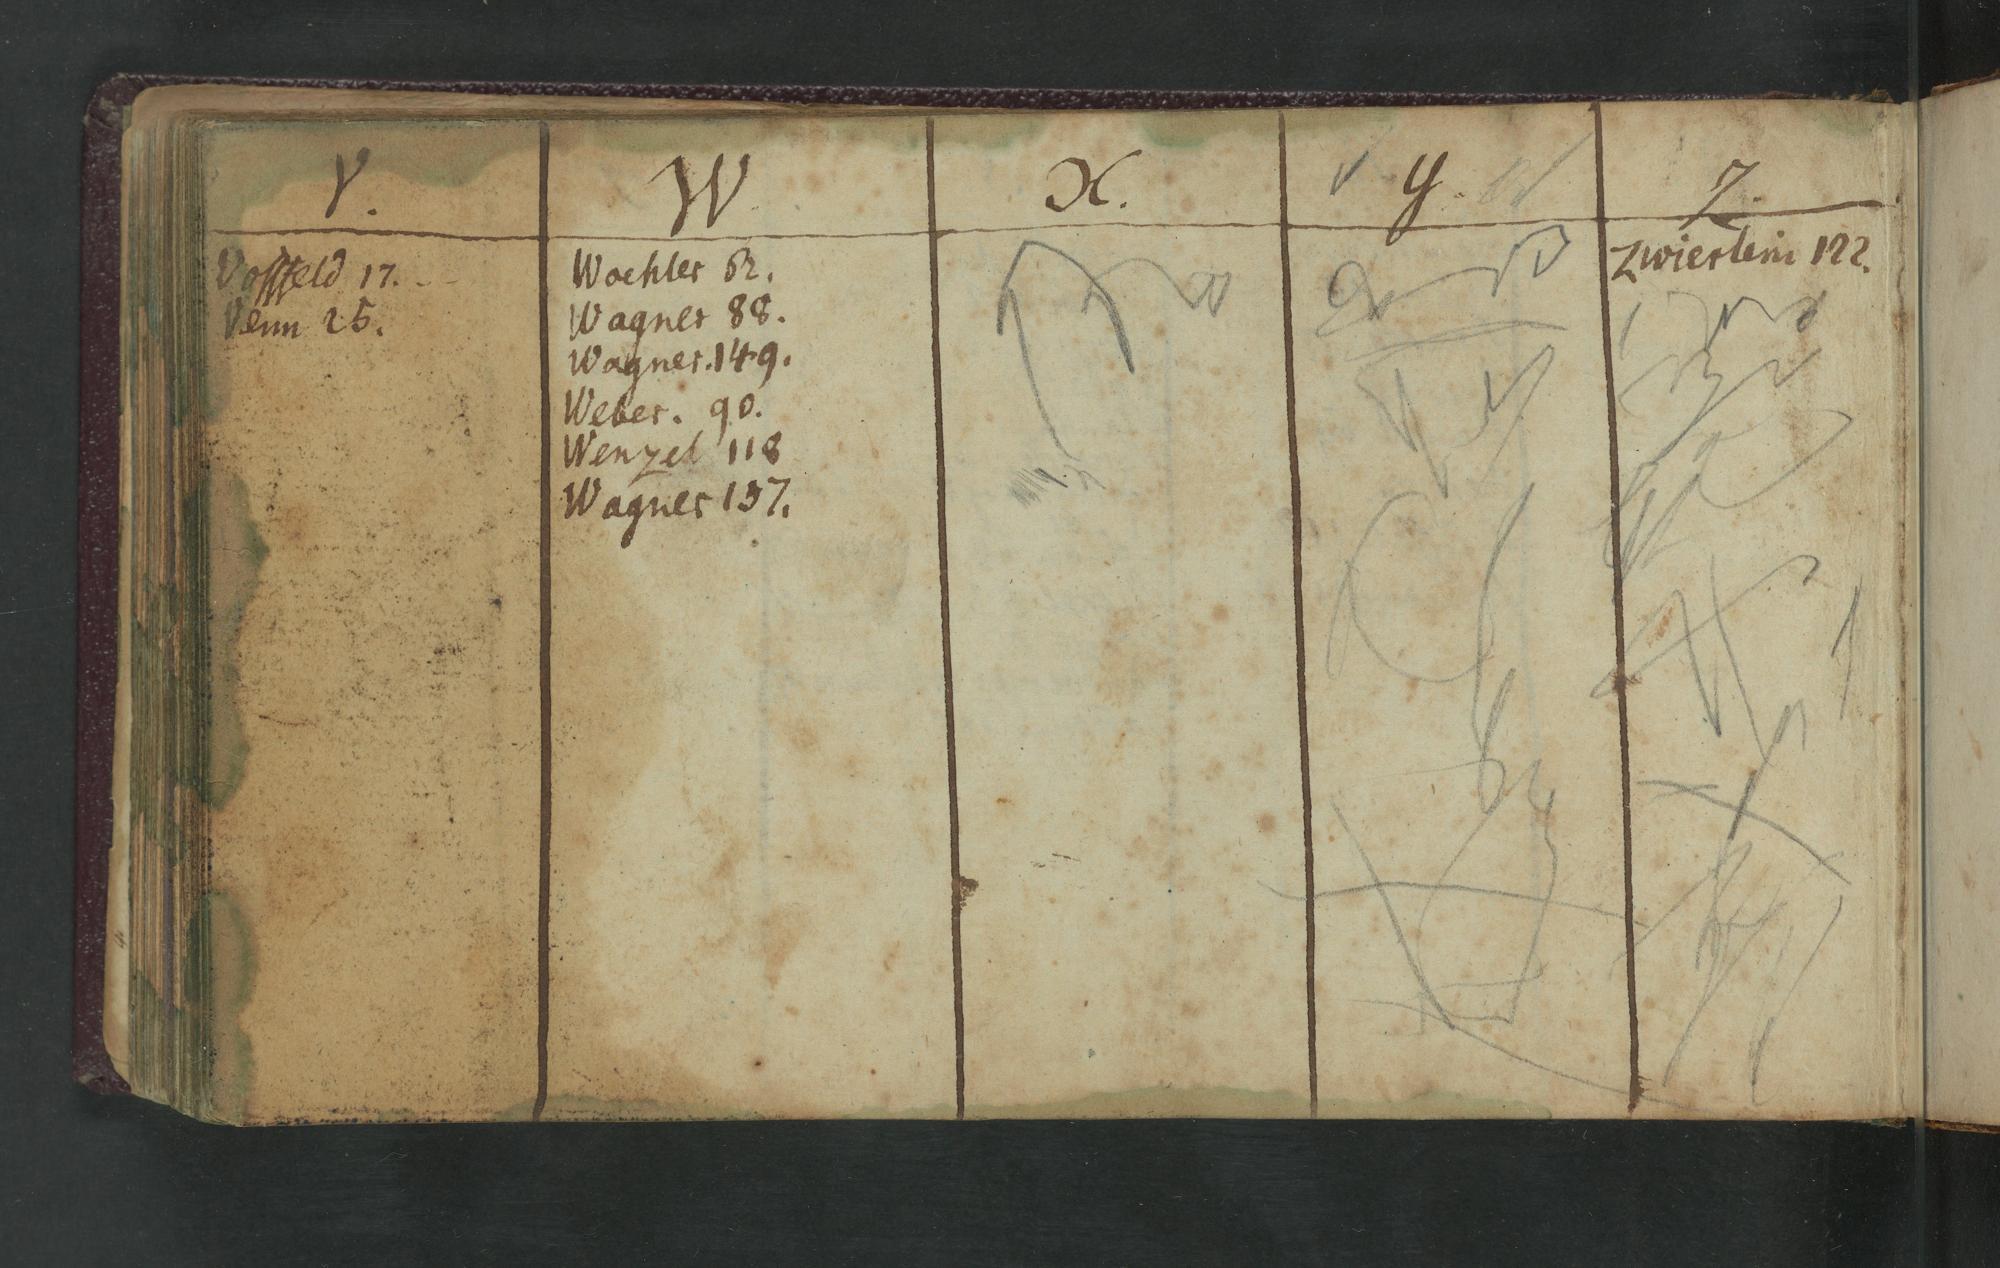 V.
Voßfeld 17.
Venn 25.
W
Waehler 52.
Wagner 88.
Wagner. 149.
Weber. 90.
Wenzel 118
Wagner 137.
X.
Y.
Z.
Zwierlein 122.